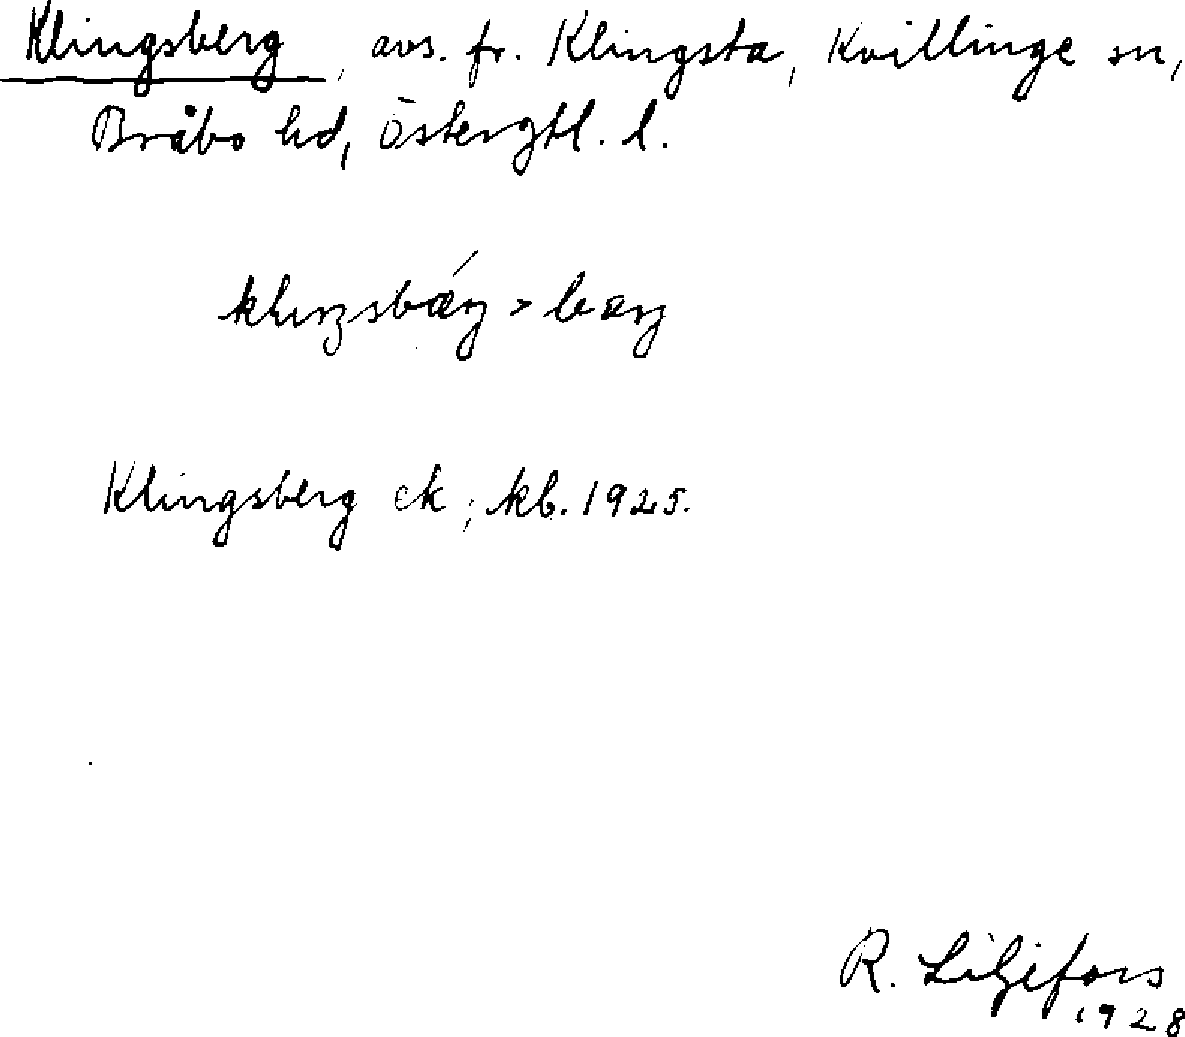 Klingsberg, avs. fr. Klingsta, Kvillinge sn,
Bråbo hd, Östergtl. l.
Klingsberg ek; kb. 1925.
R. Liljefors
1928